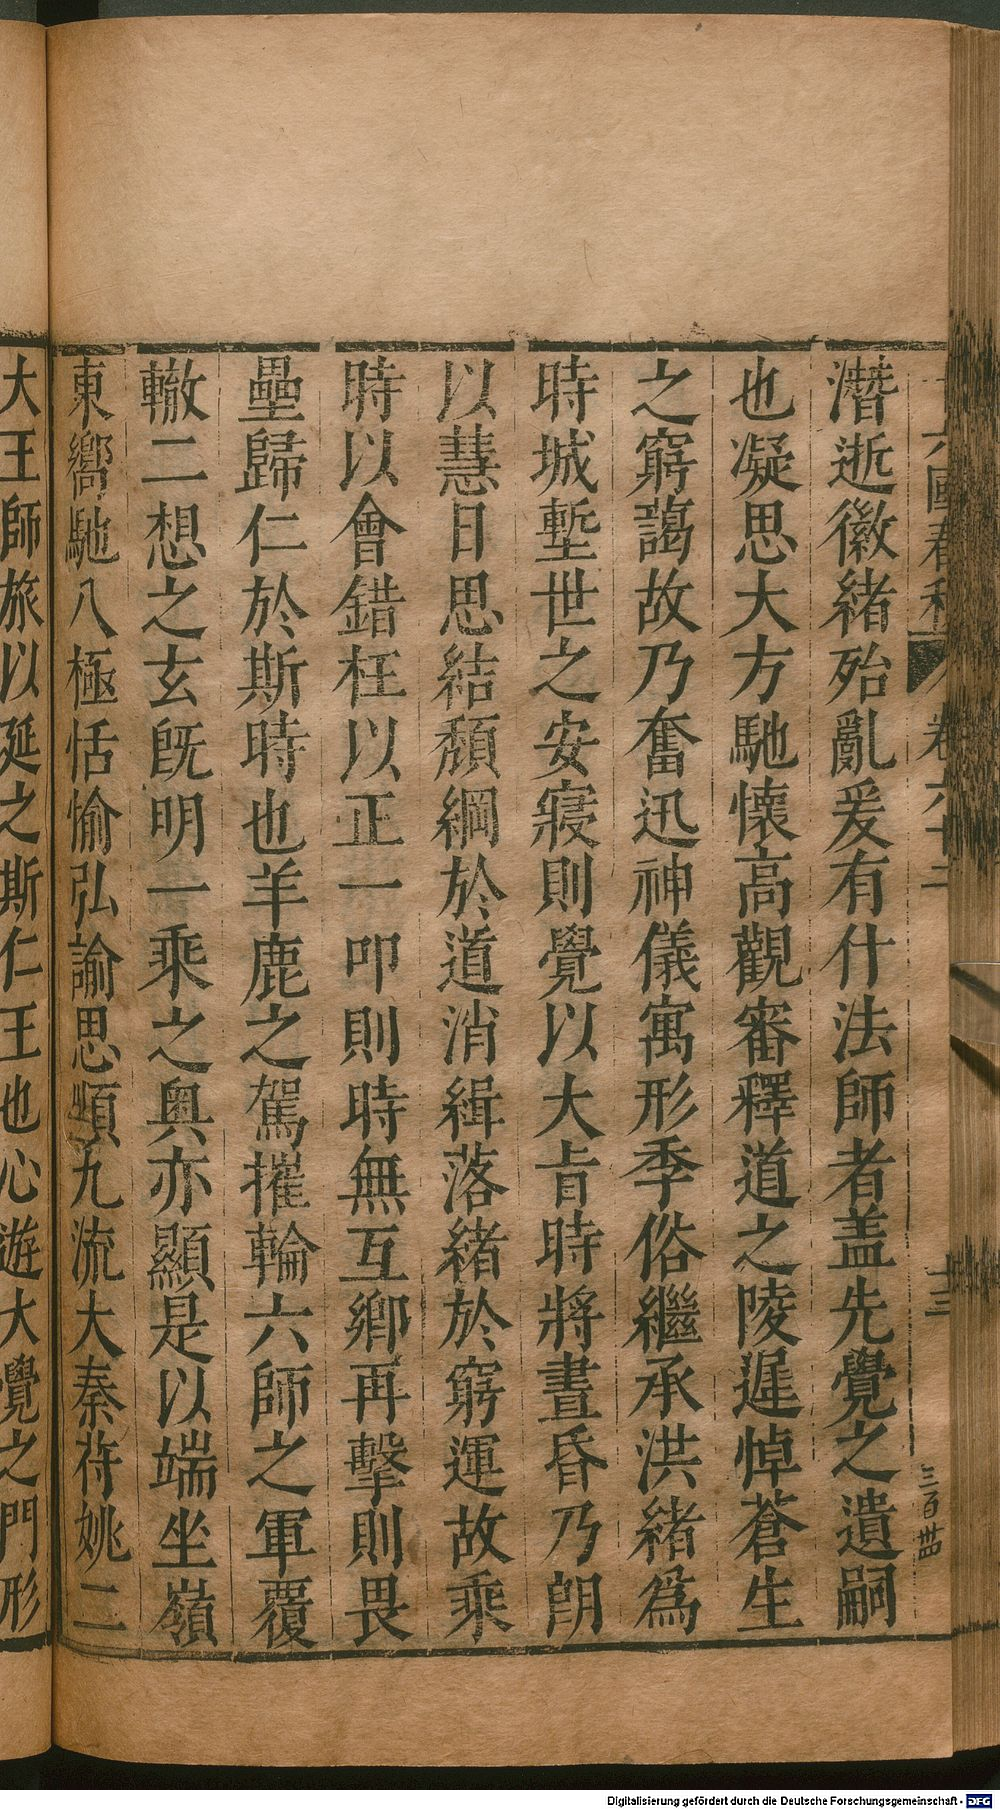 六國春秋 卷六十二 十三 三百卅四
潛逝徽緒殆亂爰有什法師者盖先覺之遺嗣
也凝思大方馳懷高觀審釋道之陵遲悼蒼生
之窮藹故乃奮迅神儀寓形季俗繼承洪緒為
時城塹世之安寢則覺以大㫖時將晝昏乃朗
以慧日思結頹綱於道消緝落緒於窮運故乘
時以會錯枉以正一叩則時無互鄉再擊則畏
壘歸仁於斯時也羊鹿之駕摧輪六師之軍覆
轍二想之玄既明一乘之奥亦顯是以端坐嶺
東嚮馳八極恬愉弘諭思順九流大秦苻姚二
大王師旅以延之斯仁王也心遊大覺之門形
Digitalisierung gefördert durch die Deutsche Forschungsgemeinschaft - DFG